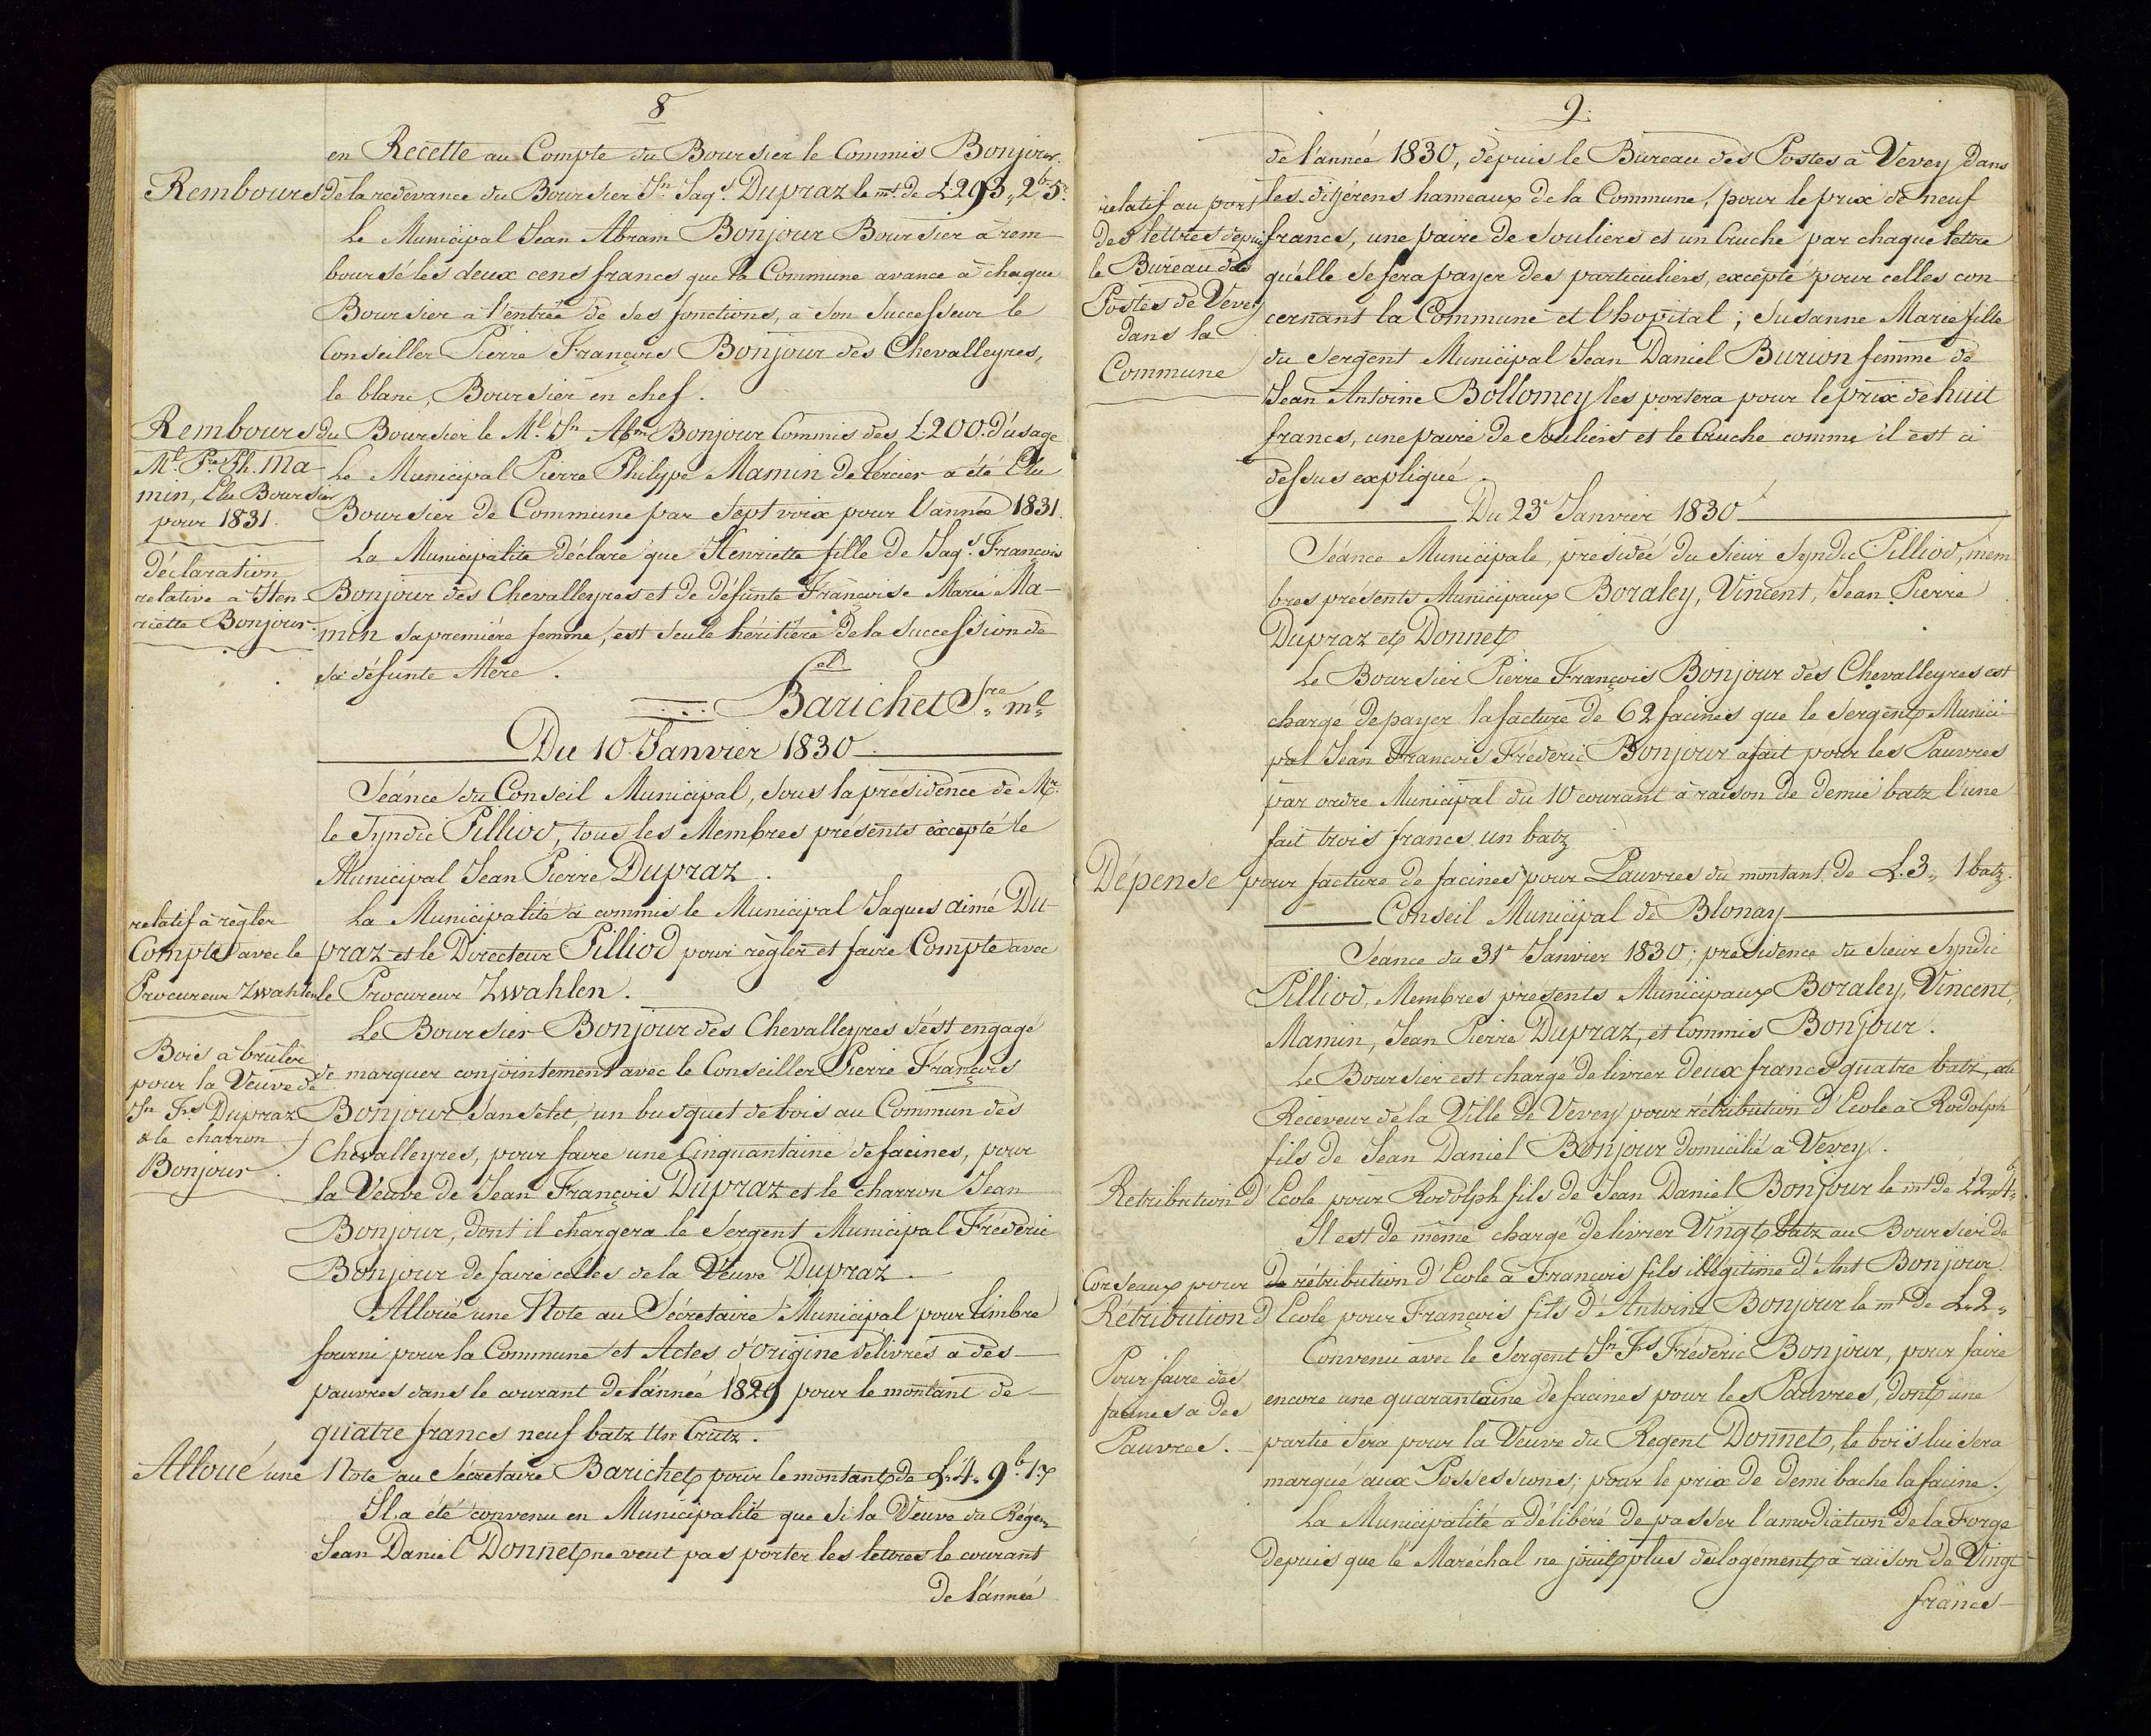 8
en Recette au Compte du Boursier le Commis Bonjour.
Rembours de la redevance du Boursier Jn Jaqs. Dupraz le mt. de £293,, 2b 5r.
Le Municipal Jean Abram Bonjour Boursier à rem-
boursé les deux cens francs que la Commune avance à chaque
Boursier à l'entrée de ses fonctions, à son Successeur le
Conseiller Pierre François Bonjour des Chevalleyres,
le blanc, Boursier en chef.
Rembours du Boursier le Ml. Jn Abm Bonjour Commis des £200. d'usage
Ml. Pre. Ph. Ma-
min, Elu Boursier
pour 1831.
Le Municipal Pierre Philippe Mamin de Tercier a été Elu
Boursier de Commune par Sept voix pour l'année 1831.
déclaration
relative à Hen-
riette Bonjour
La Municipalité déclare que Henriette fille de Jaqs. François
Bonjour des Chevalleyres et de défunte Françoise Marie Ma-
min sa première femme, est seule héritière de la succession de
sa défunte Mère.
Barichet Sre. ml.
Du 10 Janvier 1830
Séance du Conseil Municipal, sous la présidence de Mr.
le Syndic Pilliod, tous les Membres présents excepté le
Municipal Jean Pierre Dupraz.
relatif à règler
Compte avec le
Procureur Zwahlen
La Municipalité a commis le Municipal Jaques aimé Du-
praz et le Directeur Pilliod pour règler et faire Compte avec
le Procureur Zwahlen.
Bois à brûler
pour la Veuve de
Jn Fs Dupraz
& le charron
Bonjour.
Le Boursier Bonjour des Chevalleyres s'est engagé
de marquer conjointement avec le Conseiller Pierre François
Bonjour un busquet de bois au Commun des
Chevalleyres, pour faire une Cinquantaine de facines, pour
la Veuve de Jean François Dupraz et le charron Jean
Bonjour, dont il chargera le Sergent Municipal Fréderic
Bonjour de faire celles de la Veuve Dupraz.
Alloué une Note au Sécretaire Municipal pour timbre
fourni pour la Commune et Actes d'Origine délivrés à des
pauvres dans le courant de l'année 1829 pour le montant de
quatre francs neuf batz Un Crutz.
Alloué une Note au Sécretaire Barichet pour le montant de £.4,, 9b. 1x
Il a été convenu en Municipalité que si la Veuve du Régent
Jean Daniel Donnet ne veut pas porter les lettres le courant
de l'année
9.
de l'année 1830, depuis le Bureau des Postes à Vevey dans
relatif au port
des lettres depuis
le Bureau des
Postes de Vevey
dans la
Commune
les diférens hameaux de la Commune, pour le prix de neuf
francs, une paire de Souliers et un Cruche par chaque lettre
qu'elle se fera payer des particuliers, excepté pour celles con-
cernant la Commune et l'hopital; Susanne Marie fille
du Sergent Municipal Jean Daniel Burion femme de
Jean Antoine Bollomey les portera pour le prix de huit
francs, une paire de Souliers et le Cruche comme il est ci
dessus expliqué.
Du 23e Janvier 1830
Séance Municipale, présidée du Sieur Syndic Pilliod, mem-
bres présents Municipaux Boraley, Vincent, Jean Pierre
Dupraz et Donnet
Le Boursier Pierre François Bonjour des Chevalleyres est
chargé de payer la facture de 62 facines que le Sergent Munici-
pal Jean François Fréderic Bonjour a fait pour les Pauvres
par ordre Municipal du 10 courant à raison de demie batz l'une
fait trois francs un batz
Dépense pour facture de facines pour Pauvres du montant de £.3,, 1 batz.
Conseil Municipal de Blonay
Séance du 31e Janvier 1830; présidence du Sieur Syndic
Pilliod, Membres presents Municipaux Boraley, Vincent,
Mamin, Jean Pierre Dupraz, et Commis Bonjour.
Le Boursier est chargé de livrer deux francs quatre batz, au
Receveur de la Ville de Vevey pour rétribution d'Ecole à Rodolph
fils de Jean Daniel Bonjour domicilié à Vevey.
Retribution d'Ecole pour Rodolph fils de Jean Daniel Bonjour le mt de £2,,4b.
Il est de même chargé de livrer Vingt batz au Boursier de
Corseaux pour de rétribution d'Ecole à François fils illégitime d'Ant Bonjour.
Rétribution d'Ecole pour François fils d'Antoine Bonjour le mt de £.2,,
Pour faire des
facines a des
Pauvres.
Convenu avec le Sergent Jn Fs Fréderic Bonjour, pour faire
encore une quarantaine de facines pour les Pauvres, dont une
partie sera pour la Veuve du Regent Donnet, le bois lui sera
marqué aux Possessions; pour le prix de demi bache la facine.
La Municipalité a délibéré de passer l'amodiation de la Forge
depuis que le Maréchal ne jouit plus du logement à raison de Vingt
francs